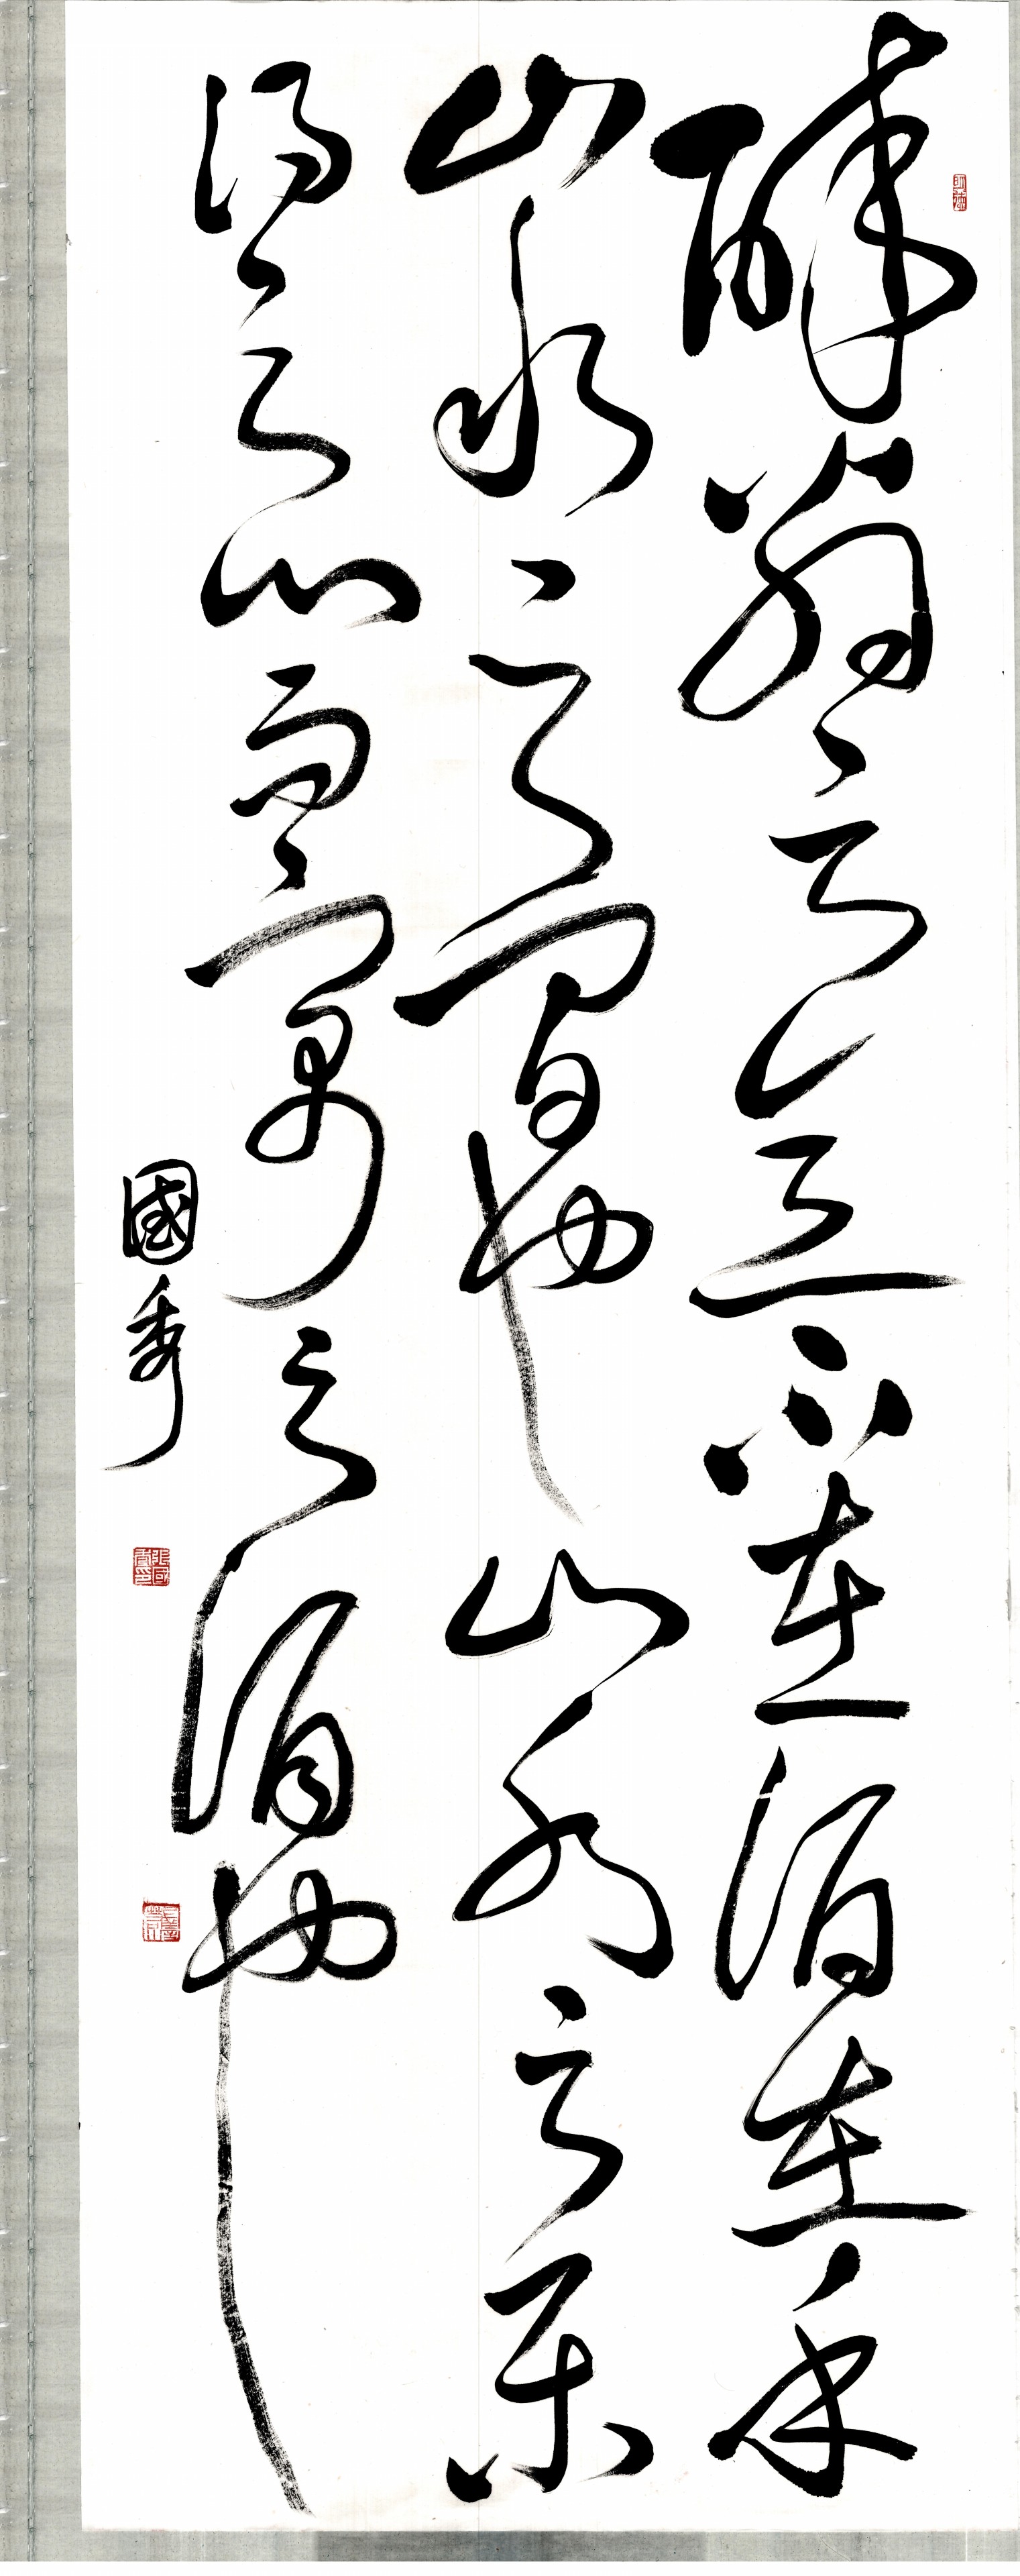 醉翁之意不在酒在乎
山水之間也山水之樂
得之心而寓之酒也
國秀
張國秀印